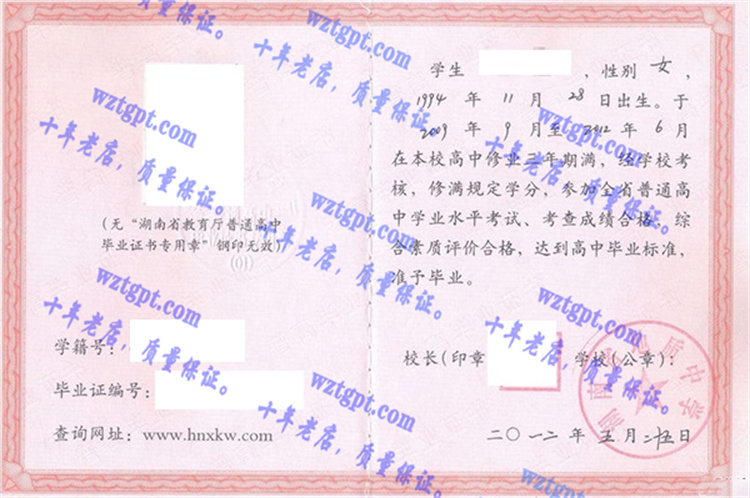 学生 ，性别 女，
1994 年 11 月 28 日出生。于
2009 年 9 月至 2012 年 6 月
在本校高中修业三年期满，经学校考
核，修满规定学分，参加全省普通高
中学业水平考试、考查成绩合格，综
合素质评价合格，达到高中毕业标准，
准予毕业。
(无“湖南省教育厅普通高中
毕业证书专用章”钢印无效)
学籍号：
毕业证编号：
查询网址：www.hnxkw.com
校长(印章 学校(公章)：
二〇一二年 五月 二五日
wztgpt.com
十年老店，质量保证。
wztgpt.com
十年老店，质量保证。
wztgpt.com
十年老店，质量保证。
wztgpt.com
十年老店，质量保证。
wztgpt.com
十年老店，质量保证。
wztgpt.com
十年老店，质量保证。
wztgpt.com
十年老店，质量保证。